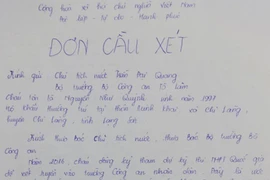 Cộng hòa xã hội chủ nghĩa Việt Nam
Độc lập - Tự do - Hạnh phúc
ĐƠN CẦU XÉT
Kính gửi Chủ tịch nước Trần Đại Quang
Bộ trưởng Bộ Công an Tô Lâm
Cháu tên là Nguyễn Như Quỳnh sinh năm 1997
Hộ khẩu thường trú tại thôn xã Chi Lăng,
huyện Chi Lăng, tỉnh Lạng Sơn
Kính thưa bác Chủ tịch nước, thưa bác bộ trưởng bộ
Công an
Năm 2016 cháu đăng ký tham dự kỳ thi THPT Quốc gia
để xét tuyển vào trường Công an nhân dân. Đây là ước